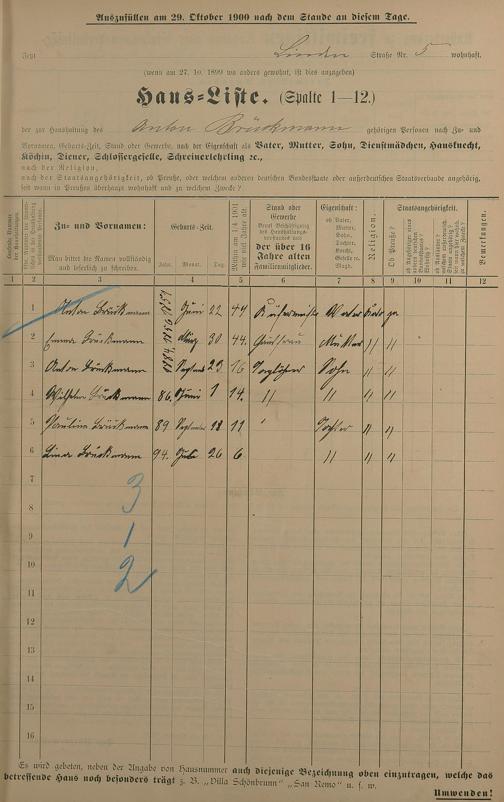 Auszufüllen am 29. Oktober 1900 nach dem Stande an diesem Tage.
Jetzt Linden Straße Nr. 5 wohnhaft.
(wenn am 27. 10. 1899 wo anders gewohnt, ist dies anzugeben)
Haus-Liste. (Spalte 1—12.)
der zur Haushaltung des Anton Brückmann gehörigen Personen nach Zu- und
Vornamen, Geburts-Zeit, Stand oder Gewerbe, nach der Eigenschaft als Vater, Mutter, Sohn, Dienstmädchen, Hausknecht,
Köchin, Diener, Schlossergeselle, Schreinerlehrling ꝛc.,
nach der Religion,
nach der Staatsangehörigkeit, ob Preuße, oder welchem anderen deutschen Bundesstaate oder außerdeutschen Staatsverbande angehörig,
seit wann in Preußen überhaupt wohnhaft und zu welchem Zwecke?
Zu- und Vornamen:
Man bittet die Namen vollständig
und leserlich zu schreiben.
Geburts-Zeit.
Jahr. Monat. Tag.
Stand oder
Gewerbe
der über 16
Jahre alten
Familienmitglieder.
Eigenschaft:
ob Vater,
Mutter,
Sohn,
Tochter,
Knecht,
Geselle ꝛc.
Magd.
Religion.
Staatsangehörigkeit.
Ob Preuße?
Bemerkungen.
1 2 3 4 5 6 7 8 9 10 11 12
1 Anton Brückmann Juni 22 44 Vater ja
2 Emma Brückmann 30 44 Mutter " "
3 Anton Brückmann 1884 Septemb 23 16 Sohn " "
4 Wilhelm Brückmann 86 Juni 1 14 " " " "
5 Pauline Brückmann 89 September 11 Tochter " "
6 Brückmann 94 Juli 26 6 " " "
7
8
9
10
11
12
13
14
15
16
3
1
2
Es wird gebeten, neben der Angabe von Hausnummer auch diejenige Bezeichnung oben einzutragen, welche das
betreffende Haus noch besonders trägt z. B. „Villa Schönbrunn" „San Remo" u. s. w.
Umwenden!